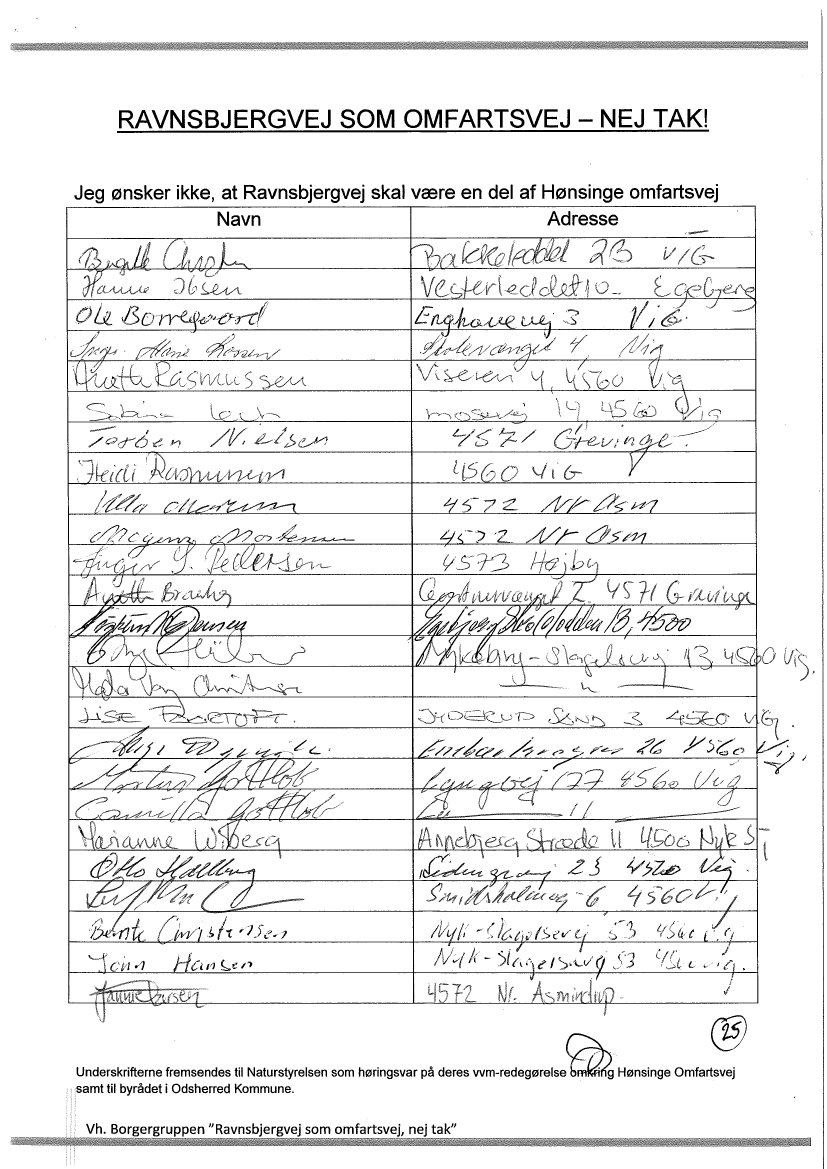 RAVNSBJERGVEJ SOM OMFARTSVEJ – NEJ TAK!
Jeg ønsker ikke, at Ravnsbjergvej skal være en del af Hønsinge omfartsvej
Navn Adresse
Bakkeleddet 2B VIG
Hanne Ibsen Vesterleddet 10 - Egebjerg
Ole Borregaard Enghavevej 3 Vig.
Inger Marie Larsen Skolevænget 4, Vig
Anette Rasmussen Viseren 4, 4560 Vig
Sabina mosevej 14, 4560 Vig
Torben Nielsen 4571 Grevinge.
Heidi Rasmussen 4560 VIG
Ulla 4572 Nr Asm
Mogens Mortensen 4572 Nr Asm
Inger S. Pedersen 4573 Højby
4571 Grevinge
13, 4500
Nykøbing-Slagelsevej 13 4560 Vig,
— " —
LISE JYDERUP 3 4560 VIG.
26 4560 Vig,
Morten Gottlob Lyngvej 177 4560 Vig
Camilla Gottlob — 11 —
Marianne Wiberg Annebjerg Stræde 11 4500 Nyk Sj
Otto 23 4560 Vig.
6, 4560
Bente Christensen Nyk-Slagelsevej 53 4560 Vig
John Hansen Nyk-Slagelsevej 53 4560 Vig.
Hanne Larsen 4572 Nr. Asmindrup
25
Underskrifterne fremsendes til Naturstyrelsen som høringsvar på deres vvm-redegørelse omkring Hønsinge Omfartsvej
samt til byrådet i Odsherred Kommune.
Vh. Borgergruppen ”Ravnsbjergvej som omfartsvej, nej tak”